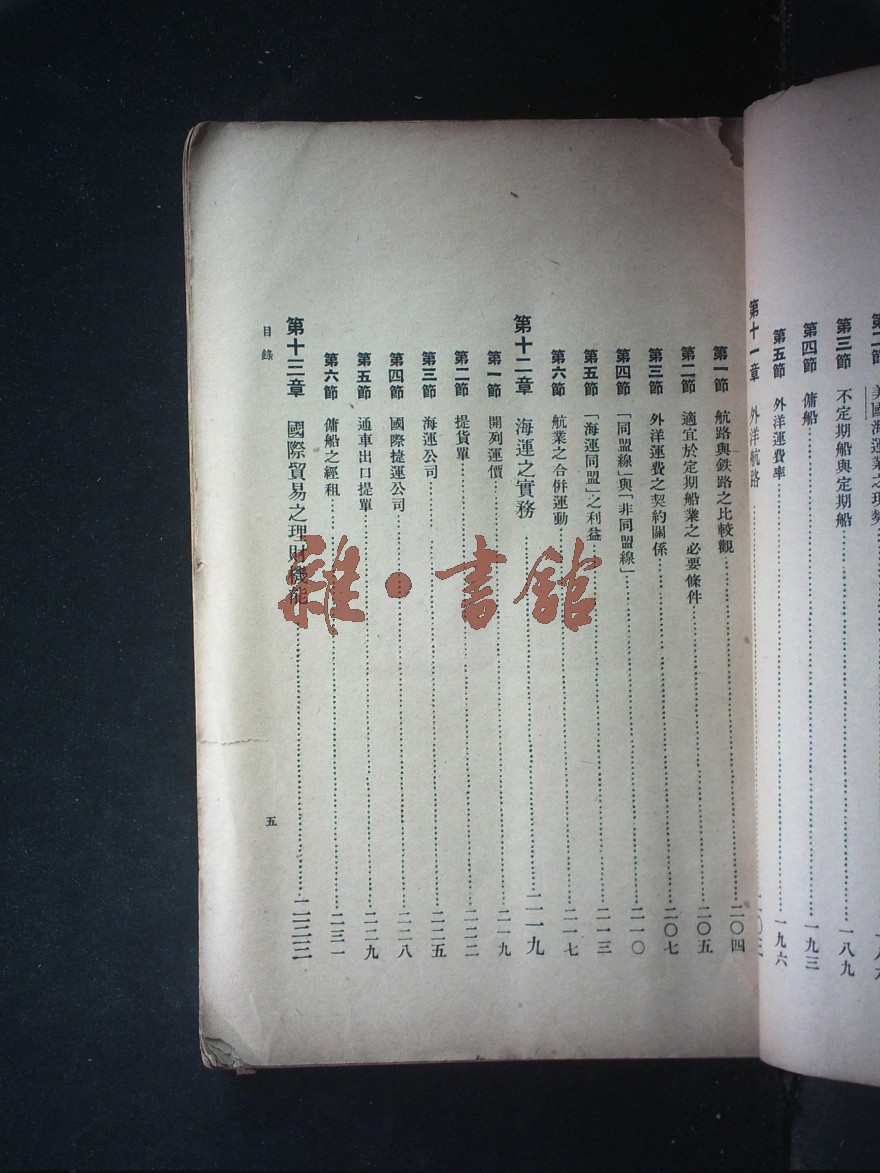 第三節 不定期船與定期船……一八九
第四節 傭船……一九三
第五節 外洋運費率……一九六
第十一章 外洋航路……二〇三
第一節 航路與鉄路之比較觀……二〇四
第二節 適宜於定期船業之必要條件……二〇五
第三節 外洋運費之契約關係……二〇七
第四節 「同盟線」與「非同盟線」……二一〇
第五節 「海運同盟」之利益……二一三
第六節 航業之合併運動……二一七
第十二章 海運之實務……二一九
第一節 開列運價……二一九
第二節 提貨單……二二二
第三節 海運公司……二二五
第四節 國際捷運公司……二二八
第五節 通車出口提單……二二九
第六節 傭船之經租……二三一
第十三章 國際貿易之理財機能……二三三
目錄
五
雜·書館